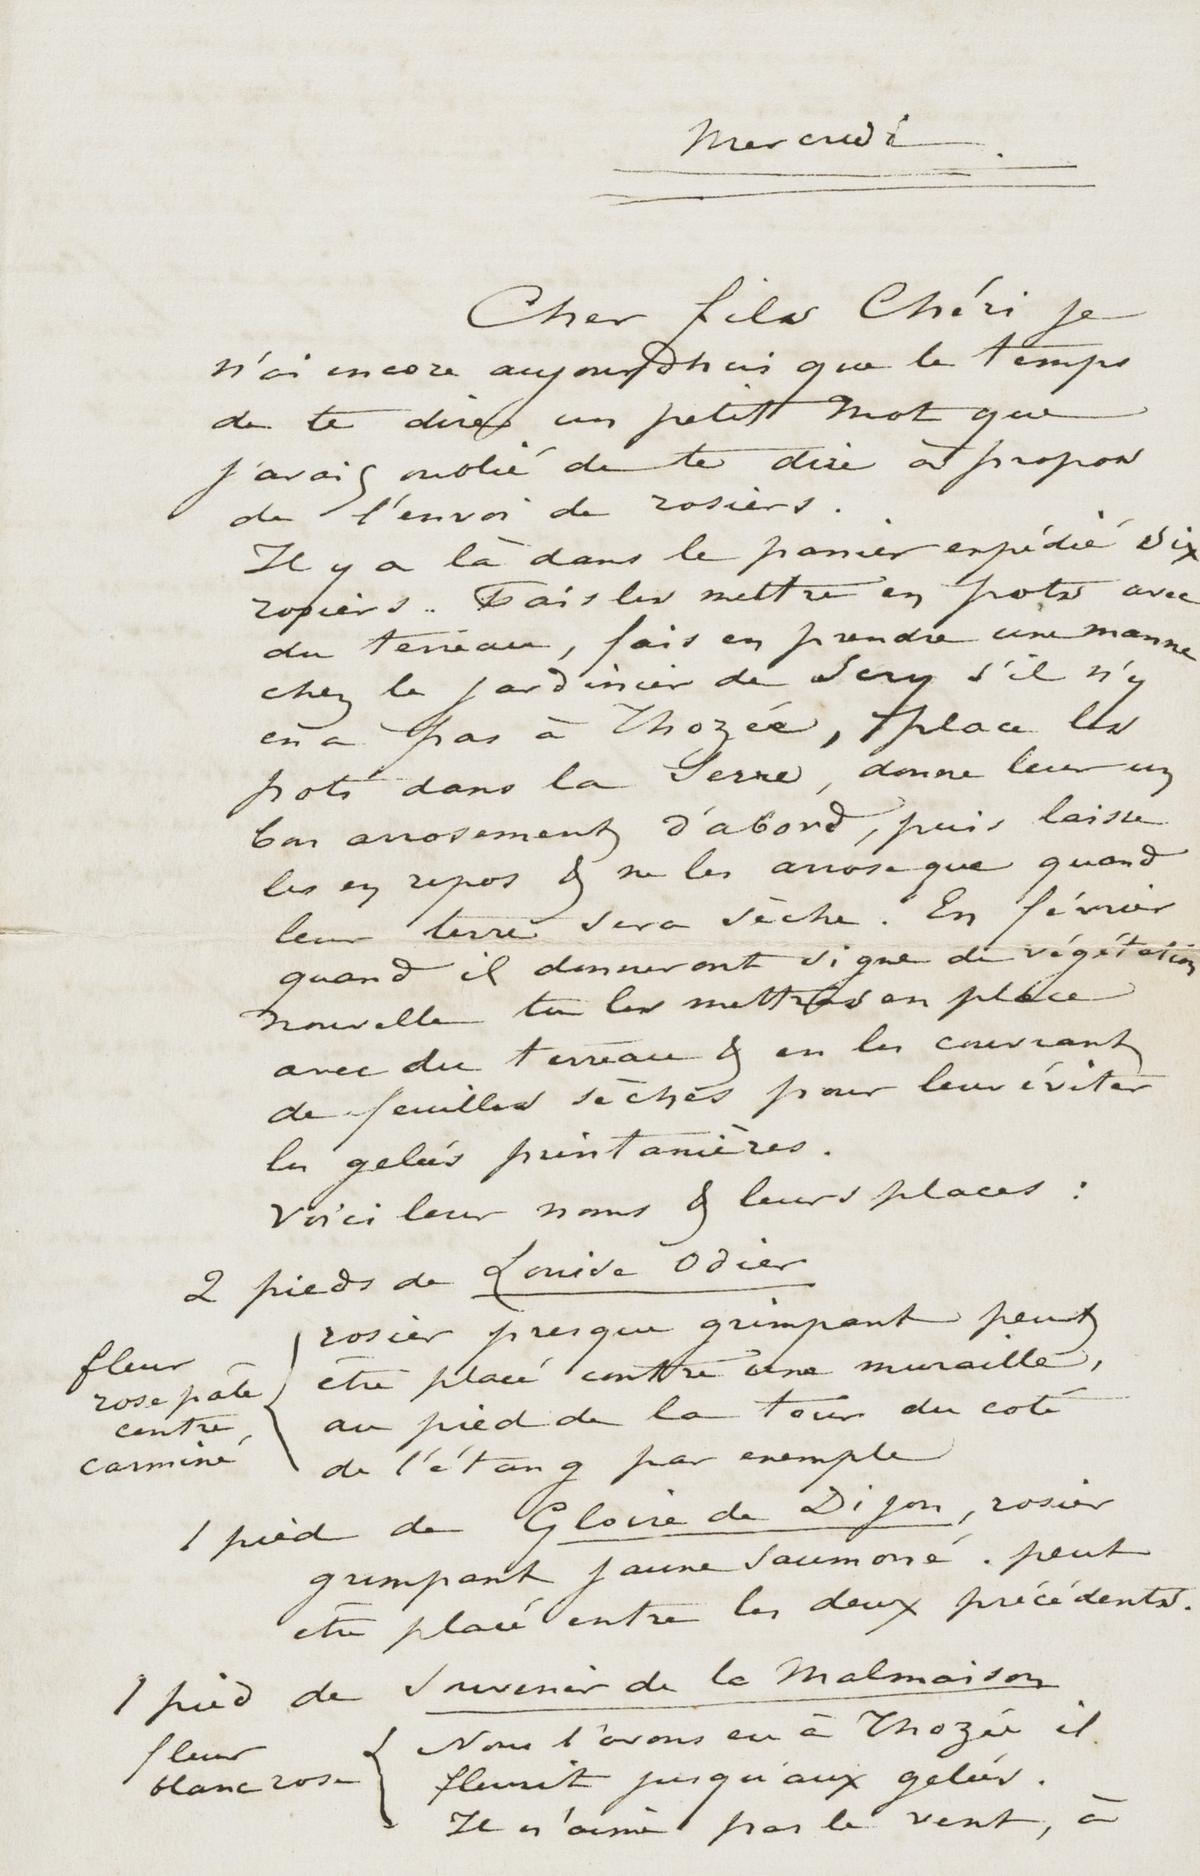 Mercredi.
Cher fils Chéri je
n'ai encore aujourdhui que le temps
de te dire un petit mot que
j'avais oublié de te dire à propos
de l'envoi de rosiers.
Il y a là dans le panier expédié six
rosiers. Fais les mettre en pots avec
du terreau, fais en prendre une manne
chez le jardinier de Scry s'il n'y
en a pas à Thozée, place les
pots dans la Serre, donne leur un
bon arrosement d'abord, puis laisse
les en repos & ne les arrose que quand
leur terre sera sèche. En février
quand il donneront signe de végétation
nouvelle tu les mettras en place
avec du terreau & en les couvrant
de feuilles sèches pour leur éviter
les gelées printanières.
Voici leur noms & leurs places :
2 pieds de Louise Odier
fleur
rose pâle
centre
carminé
rosier presque grimpant peut
être placé contre une muraille,
au pied de la tour du coté
de l'étang par exemple
1 pied de Gloire de Dijon, rosier
grimpant jaune saumoné. peut
être placé entre les deux précédents.
1 pied de Souvenir de la Malmaison
fleur
blanc rosé
Nous l'avons eu à Thozée il
fleurit jusqu'aux gelées.
Il n'aime pas le vent, à